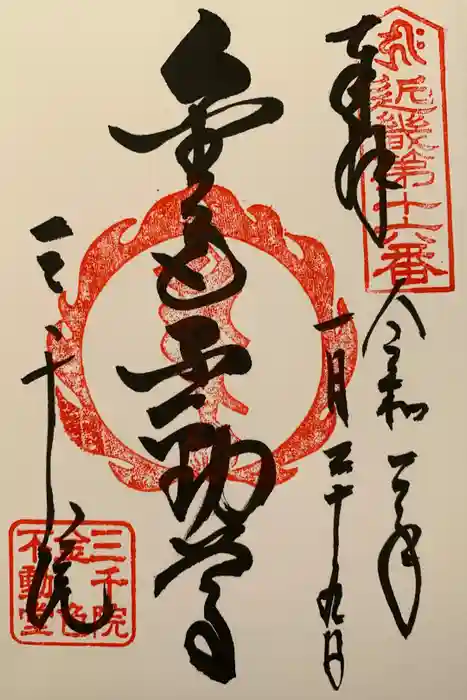 奉拝
近畿第十六番
令和二年
一月二十九日
金色不動尊
三千院
三千院
金色
不動堂